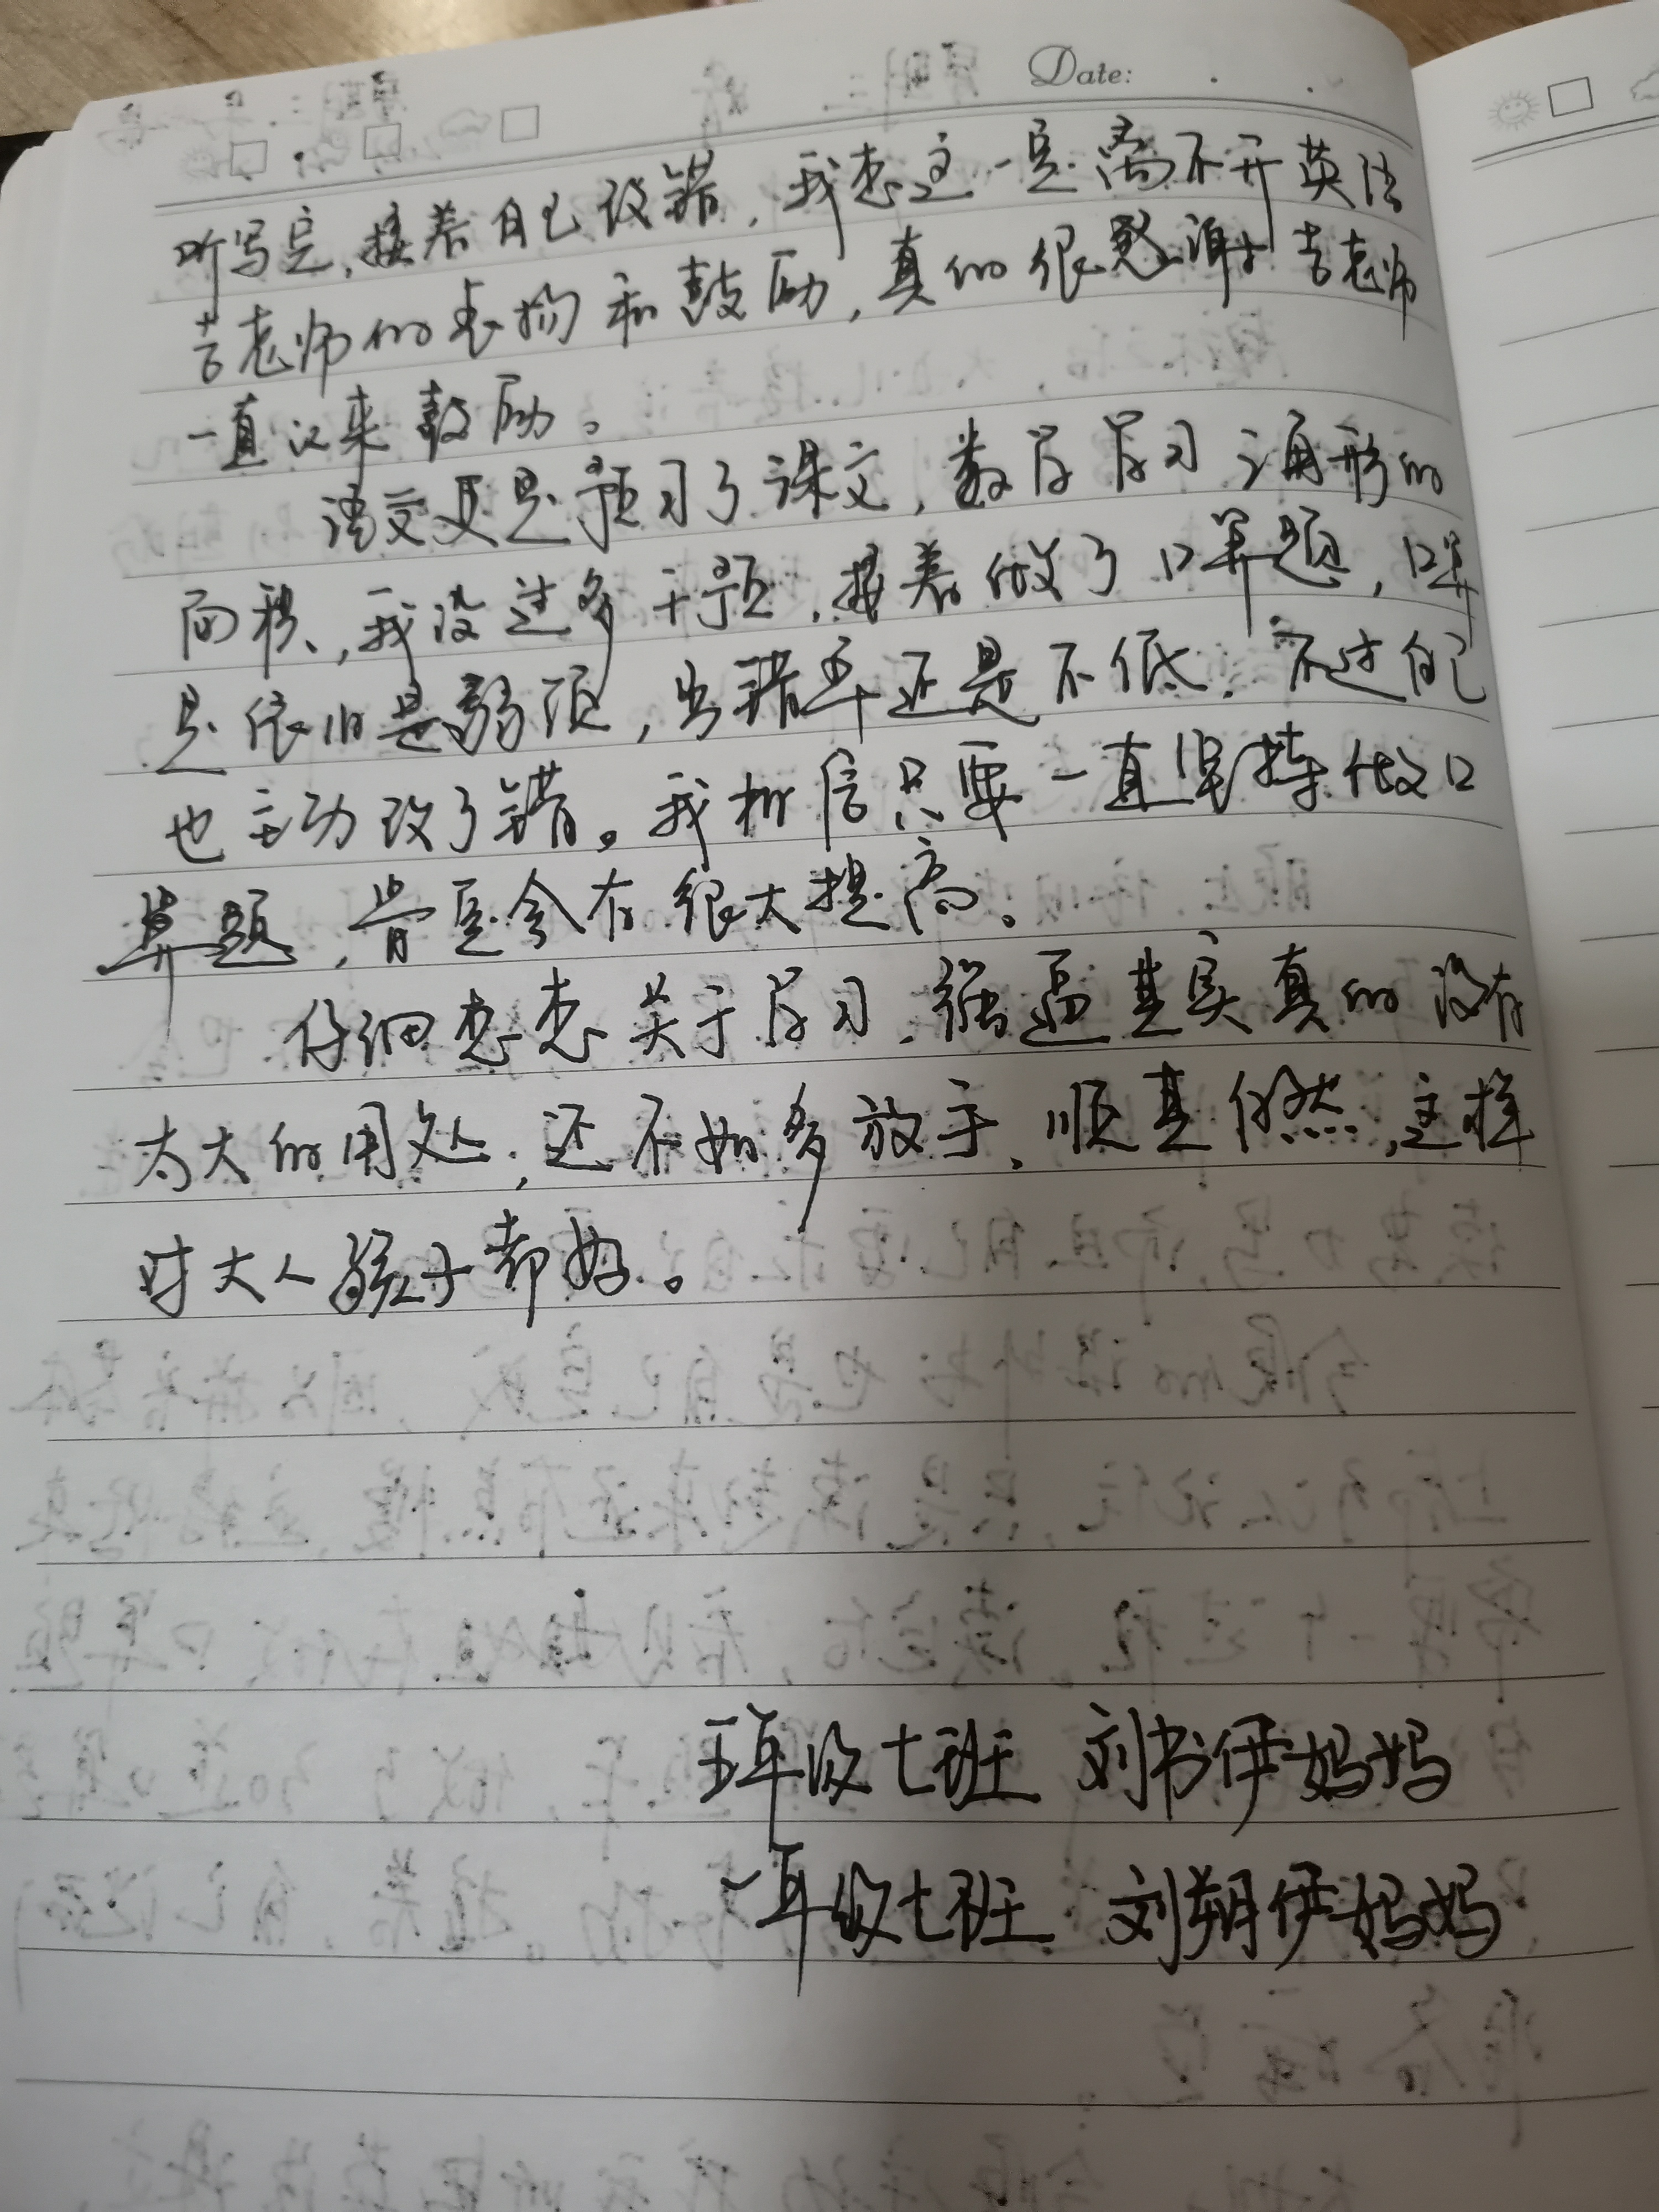 Date:
听写完，接着自己改错，我想这一定离不开英语
老师的表扬和鼓励，真的很感谢老师
一直以来鼓励。
语文又是预习了课文，数学学习三角形的
面积，我没过多干预，接着做了口算题，口算
是依旧是弱项，出错率还是不低，不过自己
也主动改了错。我相信只要一直坚持做口
算题，肯定会有很大提高。
仔细想想关于学习，强逼其实真的没有
太大的用处，还不如多放手，顺其自然，这样
对大人孩子都好。
五年级七班 刘书伊妈妈
一年级七班 刘朔伊妈妈